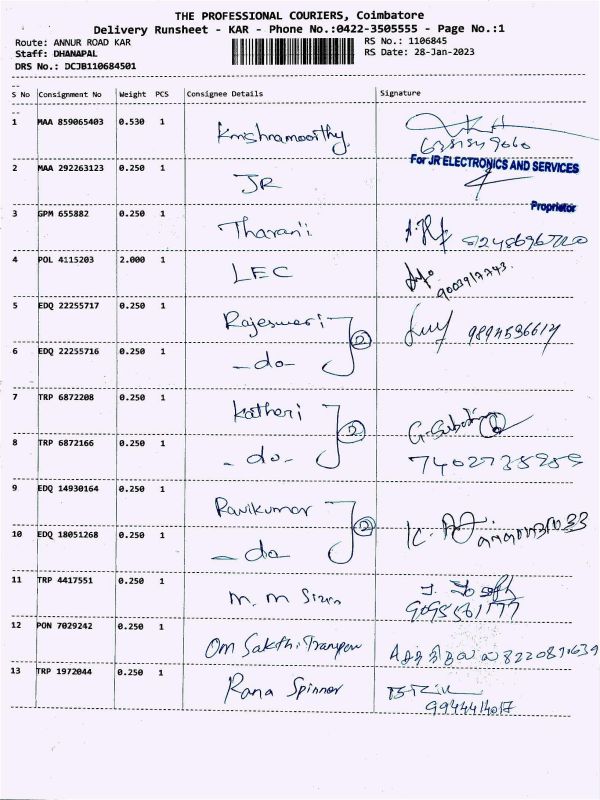 THE PROFESSIONAL COURIERS, Coimbatore
Delivery Runsheet - KAR - Phone No.:0422-3505555 - Page No.:1
Route: ANNUR ROAD KAR
RS No.: 1106845
Staff: DHANAPAL
RS Date: 28-Jan-2023
DRS No.: DCJB110684501
S No Consignment No Weight PCS Consignee Details Signature
1 MAA 859065403 0.530 1 Krishnamoorthy
For JR ELECTRONICS AND SERVICES
2 MAA 292263123 0.250 1 JR
Proprietor
3 GPM 655882 0.250 1 Tharani
4 POL 4115203 2.000 1 LEC
9003917743
5 EDQ 22255717 0.250 1 Rajeswari 2 9894536614
6 EDQ 22255716 0.250 1 -do-
7 TRP 6872208 0.250 1 Katheri 2
8 TRP 6872166 0.250 1 -do-
9 EDQ 14930164 0.250 1 Ravikumar 2
10 EDQ 18051268 0.250 1 -do-
11 TRP 4417551 0.250 1 M. M
12 PON 7029242 0.250 1 Om Sakthi
13 TRP 1972044 0.250 1 Rana Spinner
9944414017